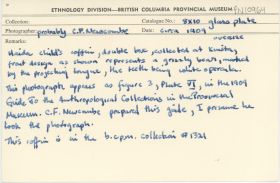 ETHNOLOGY DIVISION—BRITISH COLUMBIA PROVINCIAL MUSEUM
PN10964
Collection
Catalogue No.: 8x10 glass plate
Photographer: probably C.F. Newcombe
Date: circa 1909
Remarks:
Haida, child's coffin, double box collected at Kiusta,
front design as shown represents a grizzly bear, marked
by the projecting tongue, the teeth being white opercula.
This photograph appears as figure 3, Plate VI, in the 1909
Guide to the Anthropological Collections in the Provincial
Museum. C.F. Newcombe prepared this guide, I presume he
took the photograph.
This coffin is in the b.c.p.m. collection # 1321